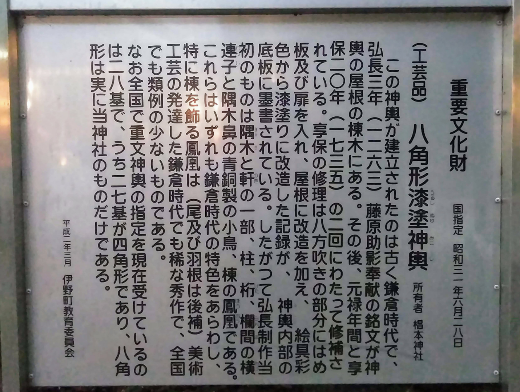 重要文化財
国指定 昭和三一年六月二八日
(工芸品) 八角形漆塗神輿
所有者 椙本神社
この神輿が建立されたのは古く鎌倉時代で、
弘長三年(一二六三)藤原助影奉献の銘文が神
輿の屋根の棟木にある。その後、元禄年間と享
保二〇年(一七三五)の二回にわたって修補さ
れている。享保の修理は八方吹きの部分にはめ
板及び扉を入れ、屋根に改造を加え、絵具彩
色から漆塗りに改造した記録が、神輿内部の
底板に墨書されている。したがって弘長制作当
初のものは隅木と軒の一部、柱、桁、欄間の横
連子と隅木鼻の青銅製の小鳥、棟の鳳凰である。
これらはいずれも鎌倉時代の特色をあらわし、
特に棟を飾る鳳凰は(尾及び羽根は後補)美術
工芸の発達した鎌倉時代でも稀な秀作で、全国
でも類例の少ないものである。
なお全国で重文神輿の指定を現在受けているの
は二八基で、うち二七基が四角形であり、八角
形は実に当神社のものだけである。
平成二年三月 伊野町教育委員会